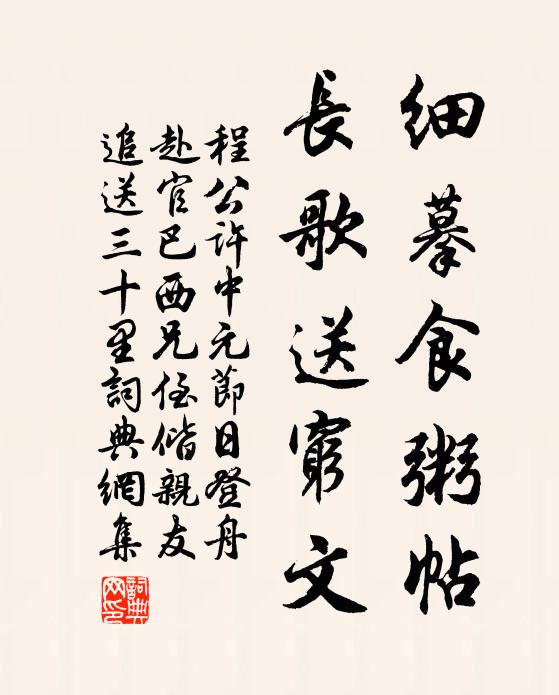 細摹食粥帖
長歌送窮文
程公許中元節日登舟
赴官巴西兄侄偕親友
追送三十里詞典網集
詞典網印